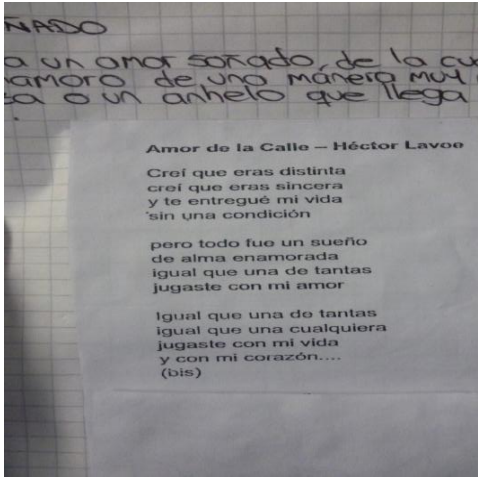 ÑADO
a un amor soñado, de la cu
amoro de una manera muy
sa o un anhelo que llega
.
Amor de la Calle – Héctor Lavoe
Creí que eras distinta
creí que eras sincera
y te entregué mi vida
sin una condición
pero todo fue un sueño
de alma enamorada
igual que una de tantas
jugaste con mi amor
Igual que una de tantas
igual que una cualquiera
jugaste con mi vida
y con mi corazón....
(bis)